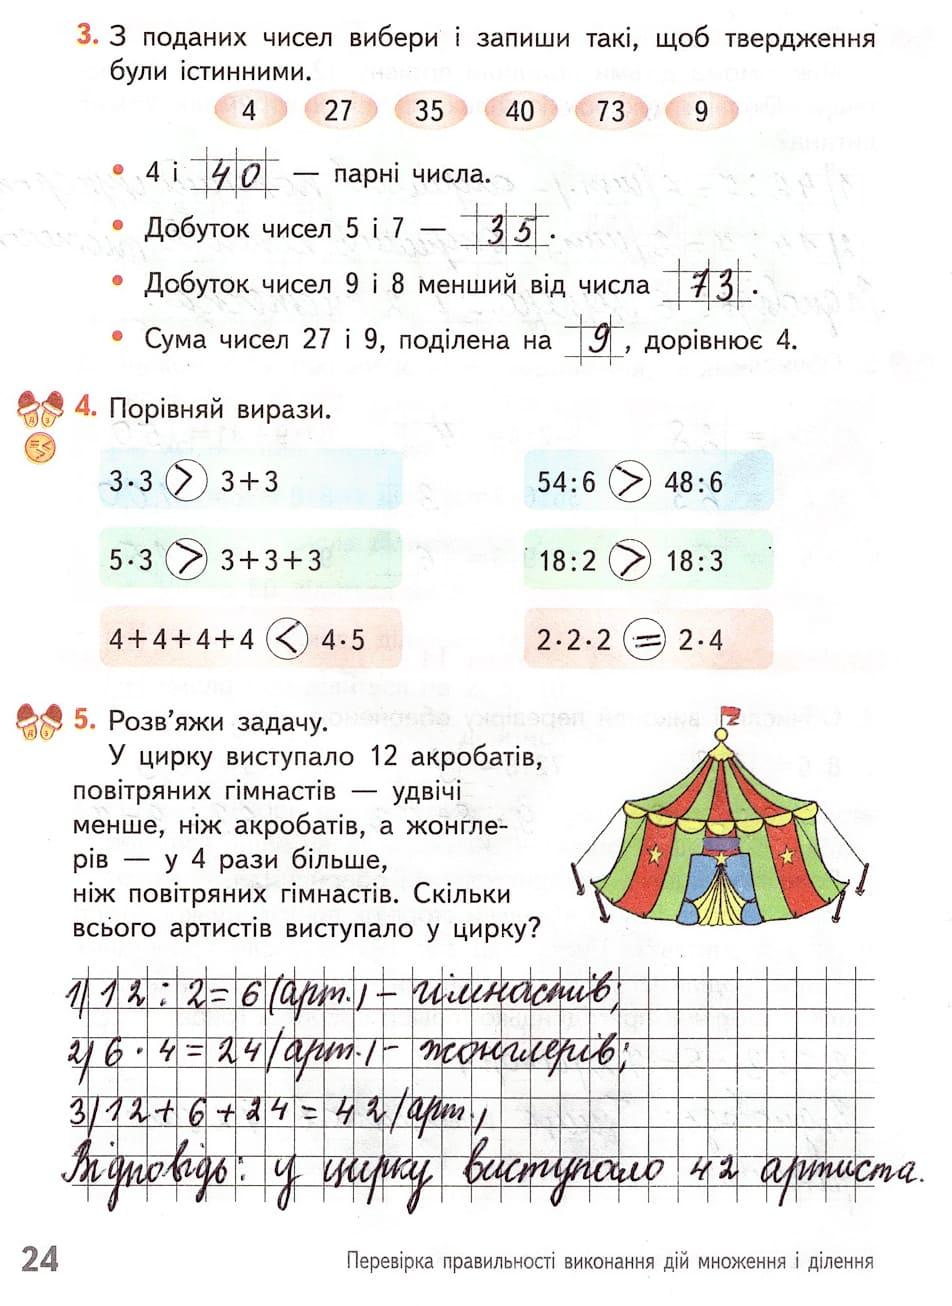 3. З поданих чисел вибери і запиши такі, щоб твердження
були істинними.
4 27 35 40 73 9
• 4 і 40 — парні числа.
• Добуток чисел 5 і 7 — 35.
• Добуток чисел 9 і 8 менший від числа 73.
• Сума чисел 27 і 9, поділена на 9, дорівнює 4.
4. Порівняй вирази.
3·3 > 3+3 54:6 > 48:6
5·3 > 3+3+3 18:2 > 18:3
4+4+4+4 < 4·5 2·2·2 = 2·4
5. Розв'яжи задачу.
У цирку виступало 12 акробатів,
повітряних гімнастів — удвічі
менше, ніж акробатів, а жонгле-
рів — у 4 рази більше,
ніж повітряних гімнастів. Скільки
всього артистів виступало у цирку?
1) 12 : 2 = 6 (арт.) – гімнастів;
2) 6 · 4 = 24 (арт.) – жонглерів;
3) 12 + 6 + 24 = 42 (арт.)
Відповідь: у цирку виступало 42 артиста.
24 Перевірка правильності виконання дій множення і ділення